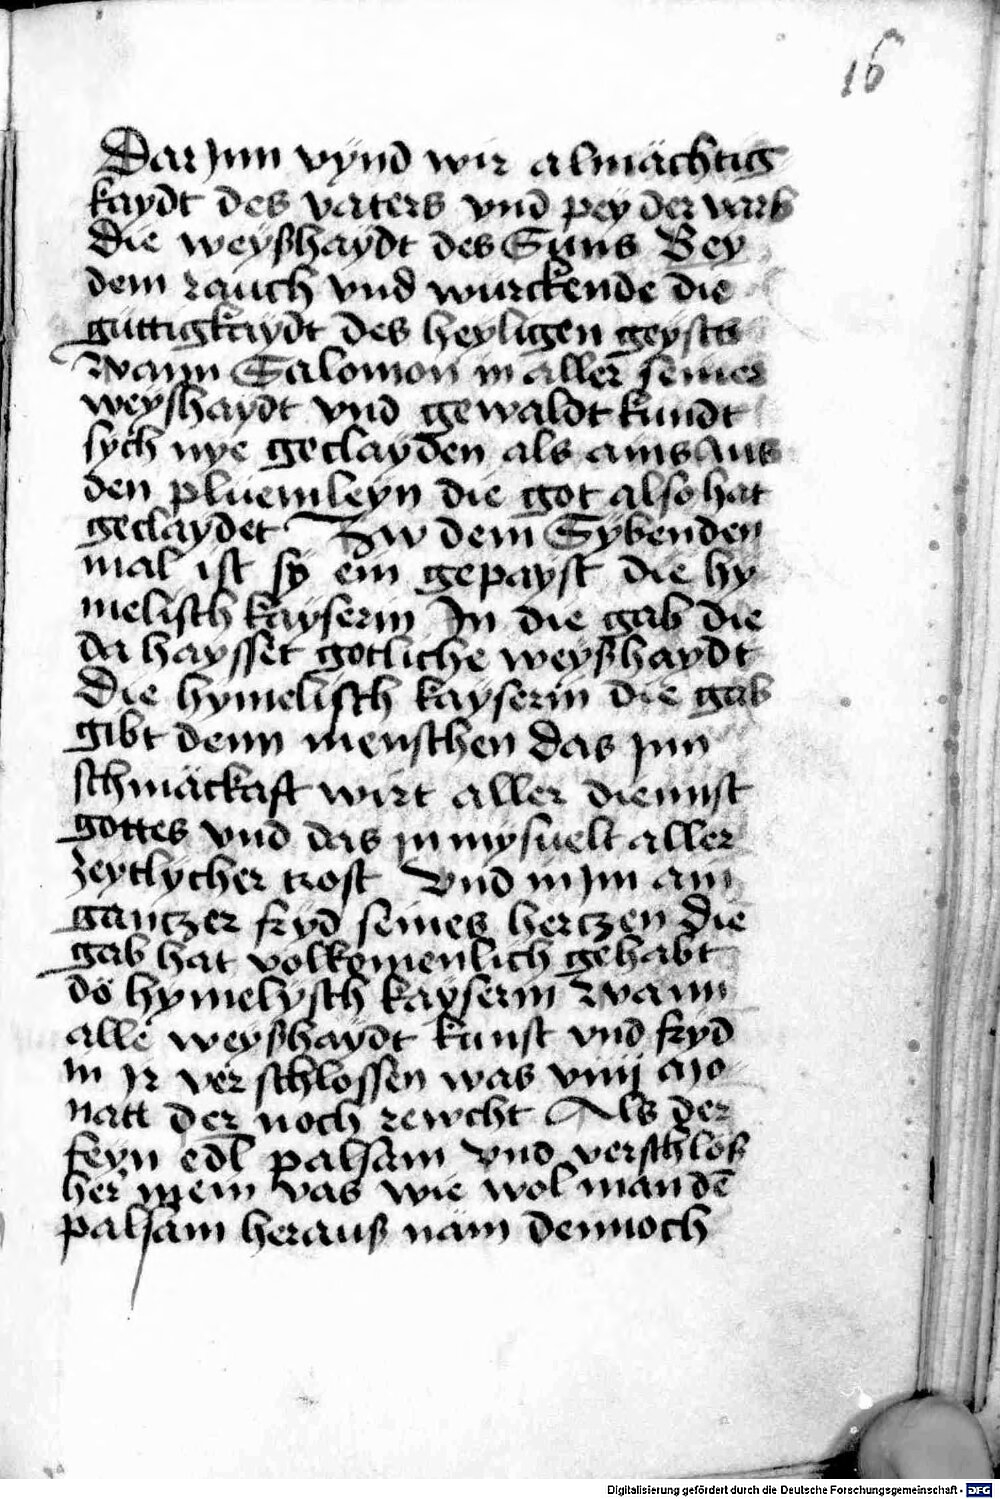 16
Dar Jnn vynd wir almächtig
kaydt des vaters vnd pey der varb
die weyßhaydt des Suns Bey
dem rauch vnd wurckende die
güttigkaydt des heyligen geysts
Wann Salomon in aller seiner
weyßhaydt vnd gewaldt kundt
sych nye geclayden als ains aus
den pluemleyn die got also hat
geclaydet Zw dem Sybenden
mal ist sy ein gepayst die hy
melisch kayserin In die gab die
da haysset gotliche weyßhaydt
Die hymelisch kayserin die gab
gibt denn menschen das jnn
schmäckaft wirt aller diennst
gottes vnd das jn mysuelt aller
zeytlycher trost Vnd in jm ain
gantzer fryd seines hertzen die
gab hat volkomenlich gehabt
dö hymelysch kayserin Wann
alle weyßhaydt kunst vnd fryd
in jr verschlossen was viiij mo
natt der noch rewcht Als der
feyn edl palsam vnd verschloß
her jn ein vas wie wol man dē
palsam herauß näm dennoch
Digitalisierung gefördert durch die Deutsche Forschungsgemeinschaft - DFG